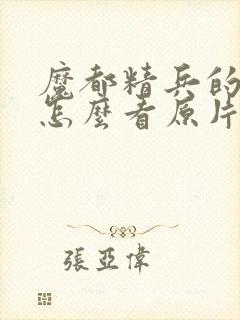 魔都精兵的
怎麼看原片
張亞偉